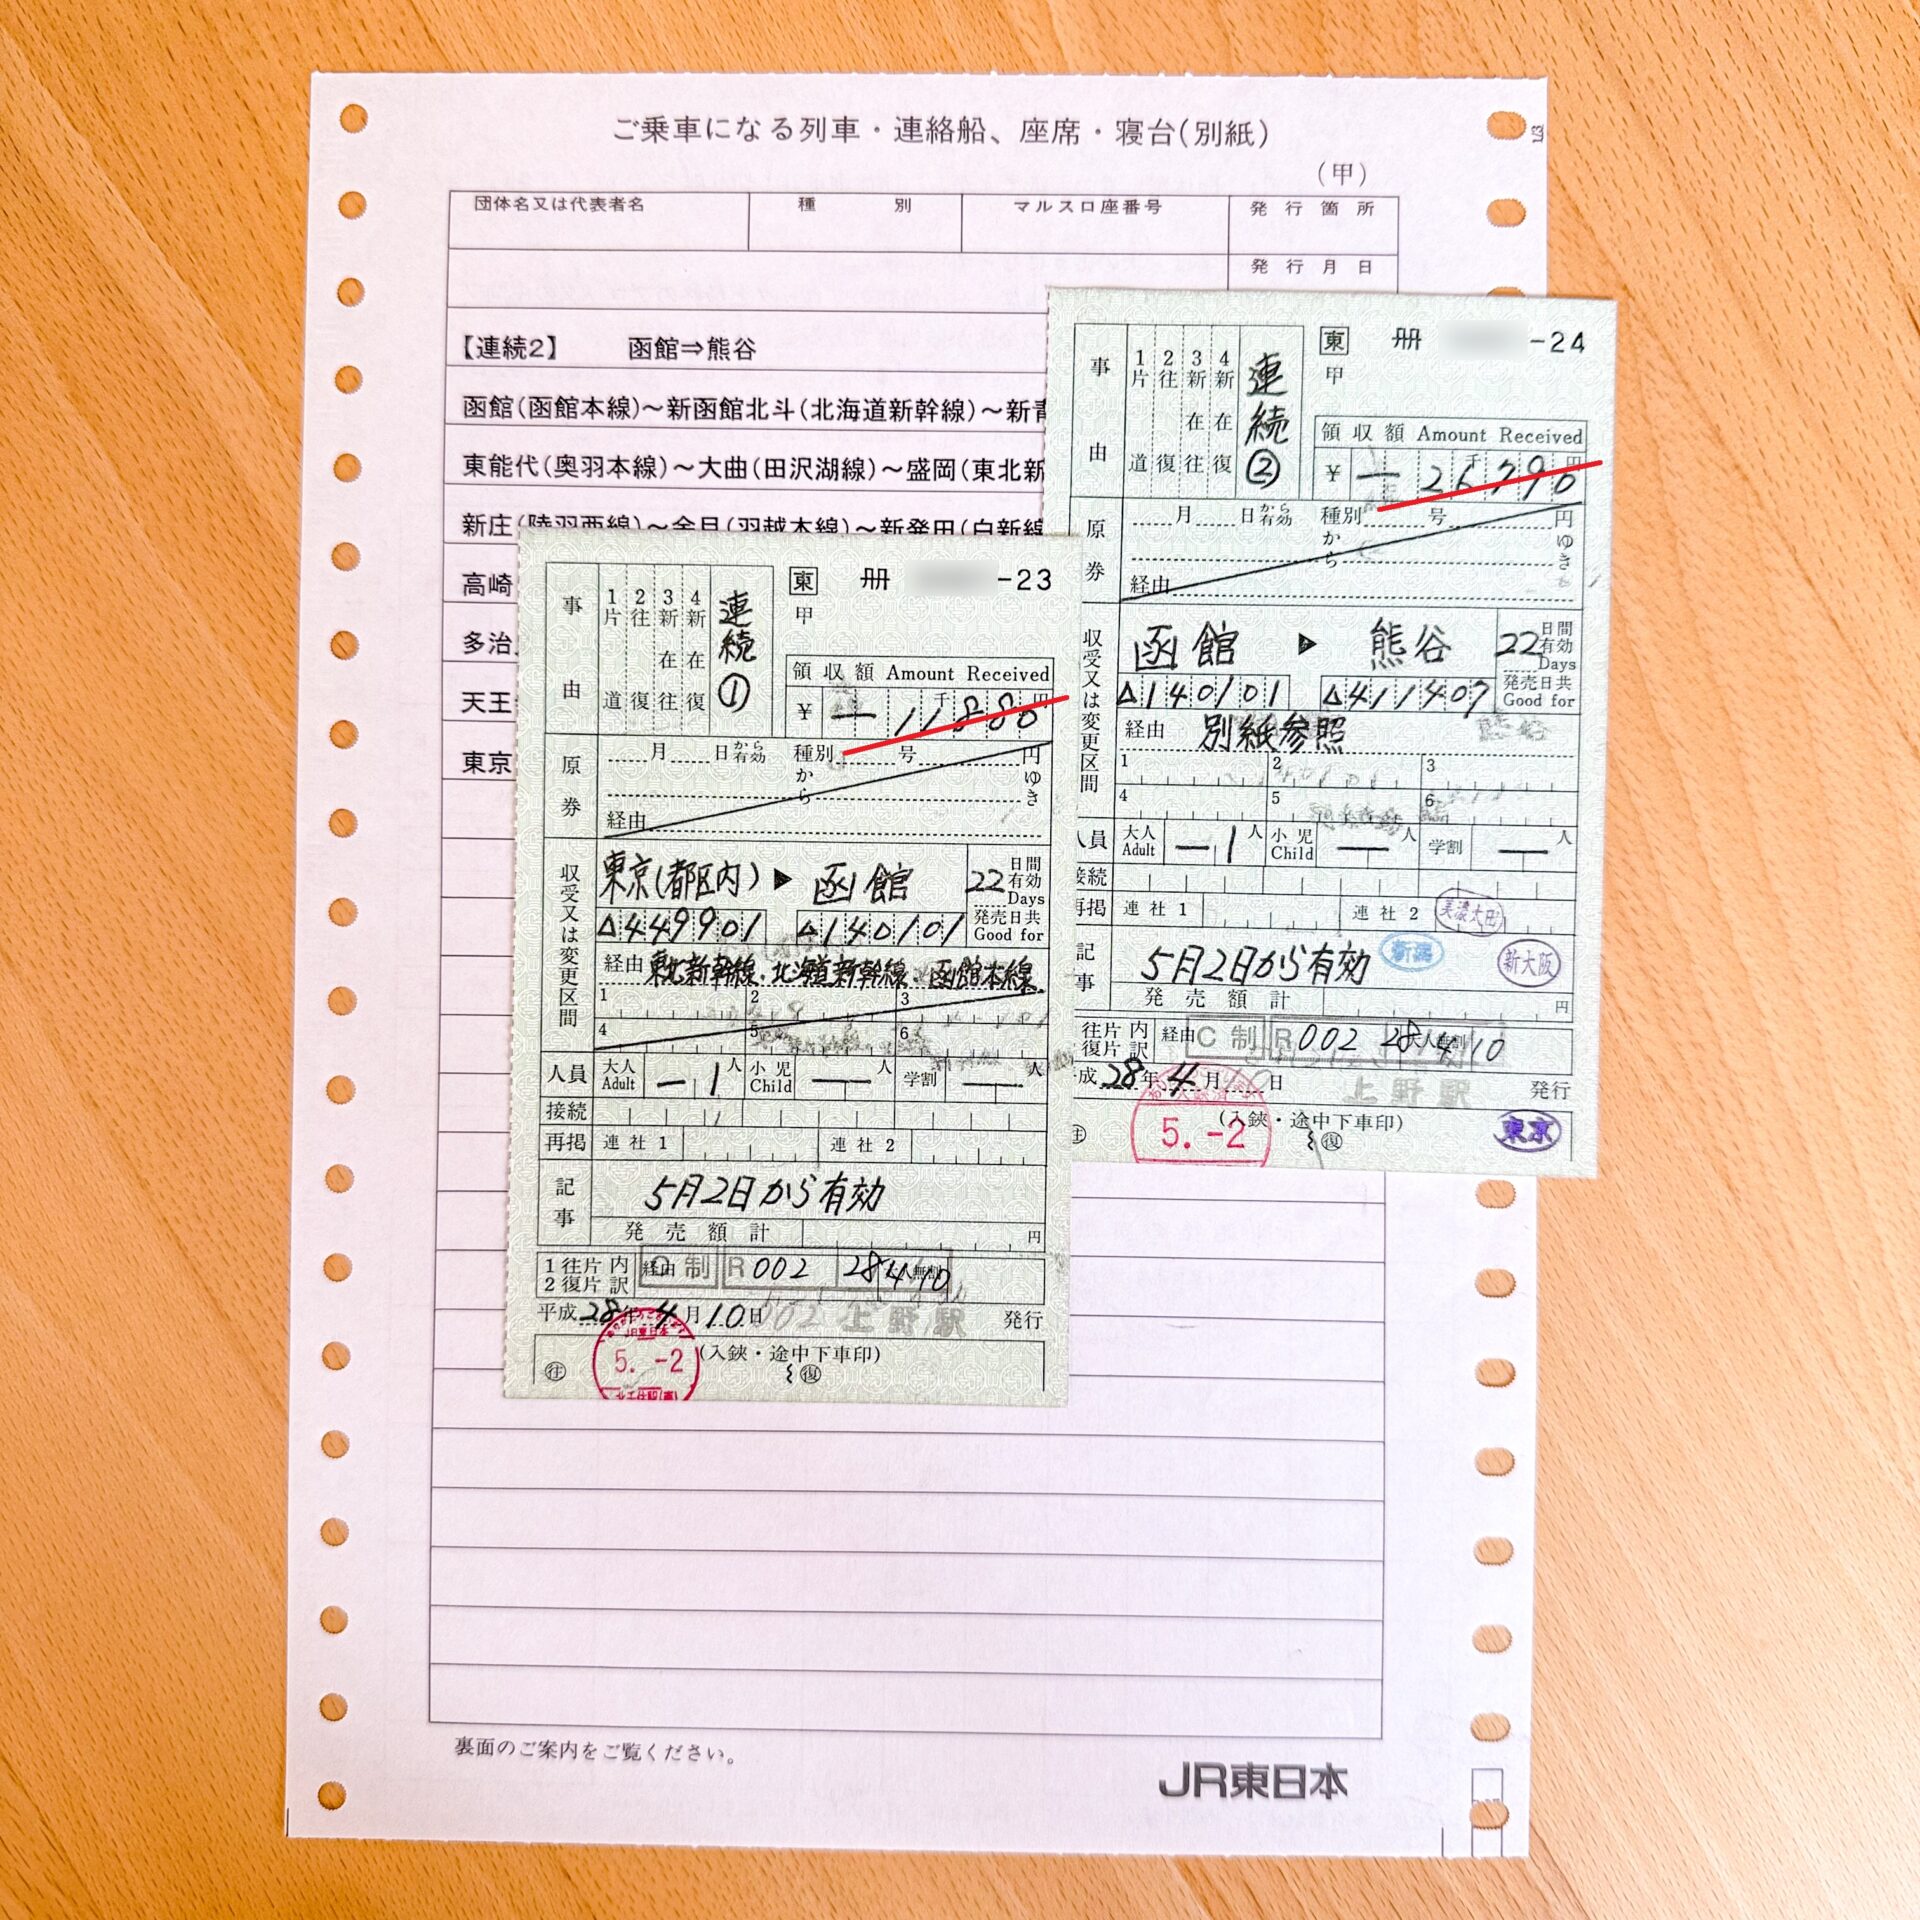 ご乗車になる列車・連絡船、座席・寝台(別紙)
(甲)
団体名又は代表者名 種別 マルス口座番号 発行箇所
発行月日
【連続2】 函館⇒熊谷
函館(函館本線)～新函館北斗(北海道新幹線)～新青
東能代(奥羽本線)～大曲(田沢湖線)～盛岡(東北新
新庄(陸羽西線)～余目(羽越本線)～新発田(白新線
高崎
多治
天王
東京
裏面のご案内をご覧ください。
JR東日本
事由
1片道 2往復 3新在往 4新在復
連続②
東 冊 -24
甲
領収額 Amount Received
¥ 26790 千 円
原券
月 日から有効 種別 号 円
から ゆき
経由
収受又は変更区間
函館 ▶ 熊谷
22 日間有効 Days
△140101 △411407
発売日共 Good for
経由 別紙参照
1 2 3
4 5 6
人員 大人 Adult 1人 小児 Child 人 学割 人
接続
再掲 連社1 連社2
美濃太田
記事
5月2日から有効
新潟
新大阪
発売額計 円
往片内
復片訳
経由 C制 R002 28410
平成28年4月10日 上野駅 発行
(入鋏・途中下車印)
5.-2
復
東京
事由
1片道 2往復 3新在往 4新在復
連続①
東 冊 -23
甲
領収額 Amount Received
¥ 11880 千 円
原券
月 日から有効 種別 号 円
から ゆき
経由
収受又は変更区間
東京(都区内) ▶ 函館
22 日間有効 Days
△449901 △140101
発売日共 Good for
経由 東北新幹線、北海道新幹線、函館本線
1 2 3
4 5 6
人員 大人 Adult 1人 小児 Child 人 学割 人
接続
再掲 連社1 連社2
記事
5月2日から有効
発売額計 円
1往片内
2復片訳
経由 C制 R002 28410
平成28年4月10日 上野駅 発行
(入鋏・途中下車印)
JR東日本
5.-2
往 復